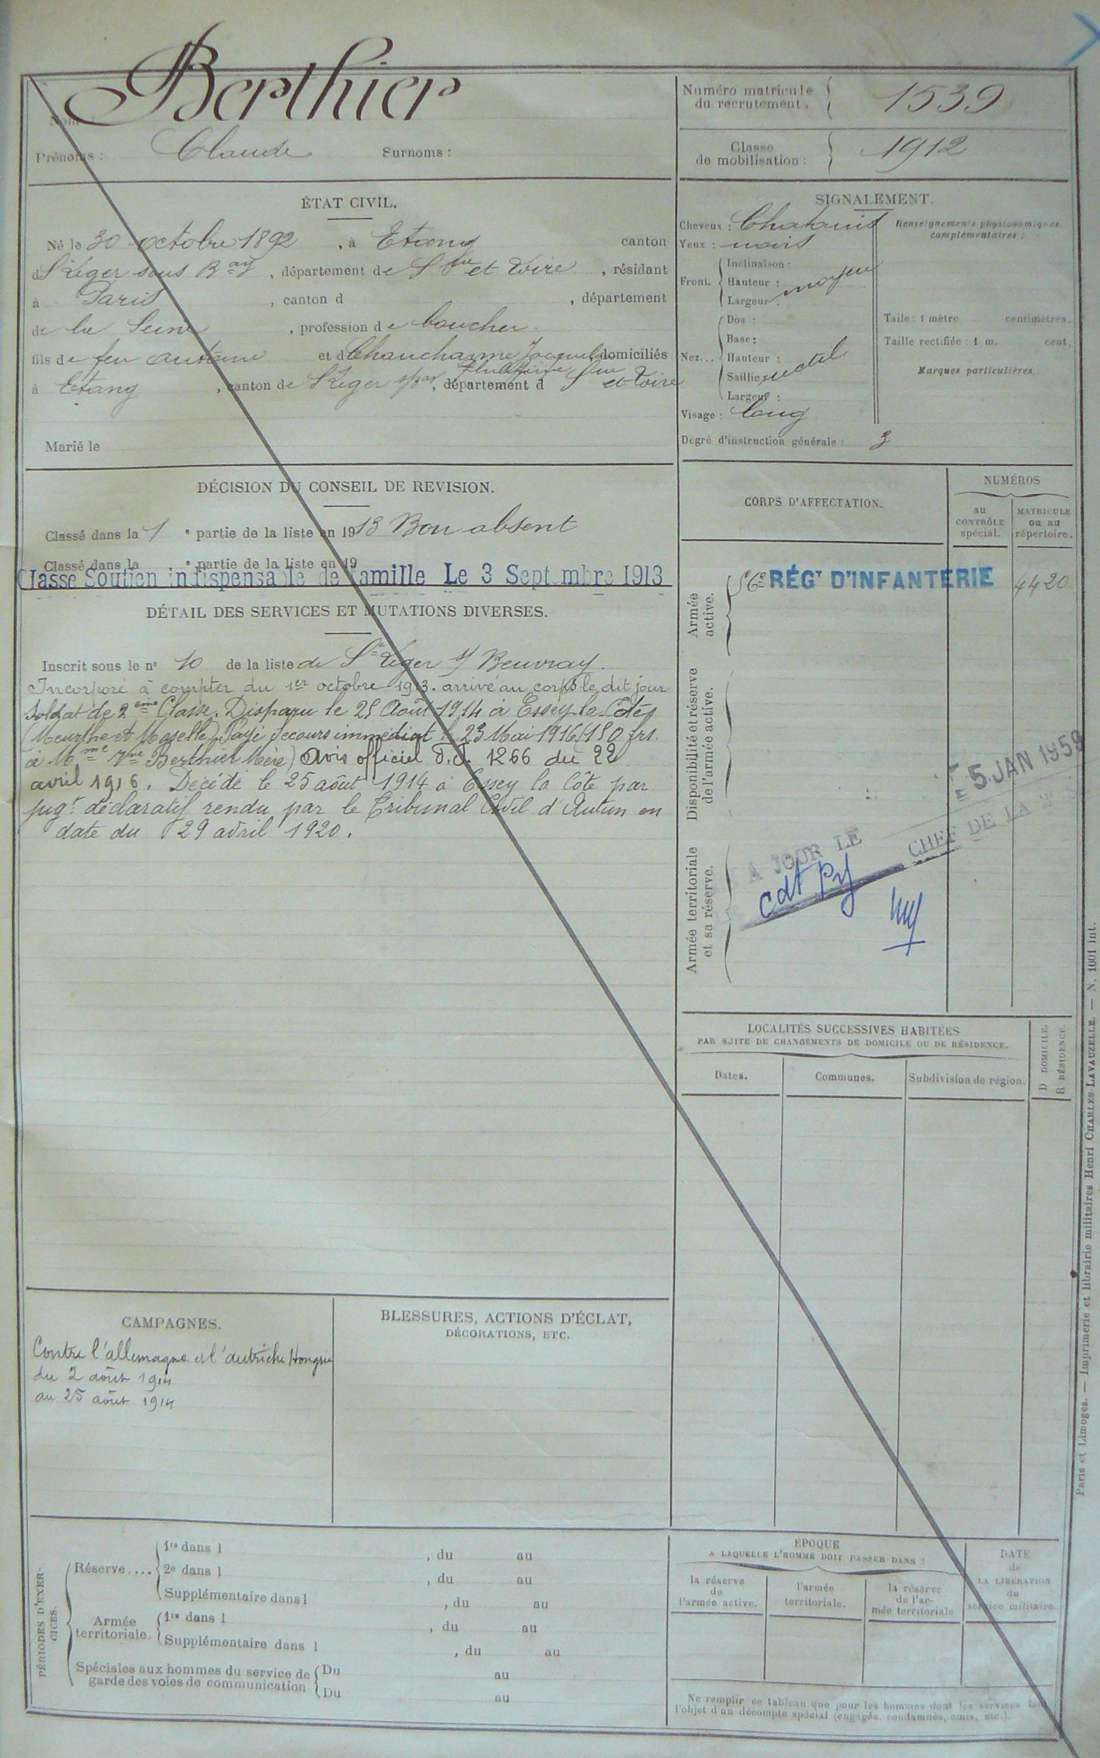 Berthier
Nom
Prénoms : Claude Surnoms :
Numéro matricule du recrutement. 1539
Classe de mobilisation : 1912
ÉTAT CIVIL.
Né le 30 octobre 1892, à Etang canton
d St Léger sous Bray, département de S. et Loire, résidant
à Paris, canton d , département
de la Seine, profession de boucher
fils de feu Antoine et de Chaucharme domiciliés
à Etang, canton de St Léger s/, département d et Loire
Marié le
SIGNALEMENT.
Cheveux : Chatains
Yeux : noirs
Front. Inclinaison :
Hauteur : moyen
Largeur :
Nez... Dos :
Base :
Hauteur :
Saillie
Largeur :
Visage : long
Degré d'instruction générale : 3
Renseignements physionomiques complémentaires :
Taille : 1 mètre centimètres.
Taille rectifiée : 1 m. cent.
Marques particulières.
DÉCISION DU CONSEIL DE REVISION.
Classé dans la 1 e partie de la liste en 1913 Bon absent
Classé dans la e partie de la liste en 19
Classé Soutien indispensable de famille Le 3 Septembre 1913
DÉTAIL DES SERVICES ET MUTATIONS DIVERSES.
Inscrit sous le n° 10 de la liste de St Léger s/ Beuvray.
Incorporé à compter du 1er octobre 1913. arrivé au corps le dit jour
soldat de 2ème Classe. Disparu le 25 Août 1914 à Essey-la-Côtes
(Meurthe et Moselle). Payé secours immédiat le 23 Mai 1916 (150 frs.
à Mme Vve Berthier Mère) Avis officiel 1266 du 22
avril 1916. Décédé le 25 août 1914 à Essey la Côte par
jugt déclaratif rendu par le Tribunal Civil d'Autun en
date du 29 avril 1920.
CORPS D'AFFECTATION.
NUMÉROS
au CONTRÔLE spécial.
MATRICULE ou au répertoire.
Armée active.
56e RÉGT D'INFANTERIE 4420
Disponibilité et réserve de l'armée active.
Armée territoriale et sa réserve.
5 JAN 1959
A JOUR LE
CHEF DE LA
cdt Py
LOCALITÉS SUCCESSIVES HABITÉES
PAR SUITE DE CHANGEMENTS DE DOMICILE OU DE RÉSIDENCE.
Dates. Communes. Subdivision de région. D DOMICILE. R RÉSIDENCE.
CAMPAGNES.
Contre l'allemagne et l'autriche Hongrie
du 2 août 1914
au 25 août 1914
BLESSURES, ACTIONS D'ÉCLAT,
DÉCORATIONS, ETC.
PÉRIODES D'EXERCICES.
Réserve.... 1re dans l , du au
2e dans l , du au
Supplémentaire dans l , du au
Armée territoriale. 1re dans l , du au
Supplémentaire dans l , du au
Spéciales aux hommes du service de garde des voies de communication
Du au
Du au
ÉPOQUE
A LAQUELLE L'HOMME DOIT PASSER DANS :
la réserve de l'armée active.
l'armée territoriale.
la réserve de l'armée territoriale
DATE de LA LIBÉRATION du service militaire.
Ne remplir ce tableau que pour les hommes dont les services
l'objet d'un décompte spécial (engagés, condamnés, omis, etc.).
Paris et Limoges. — Imprimerie et librairie militaires Henri CHARLES-LAVAUZELLE. — N. 1001 int.